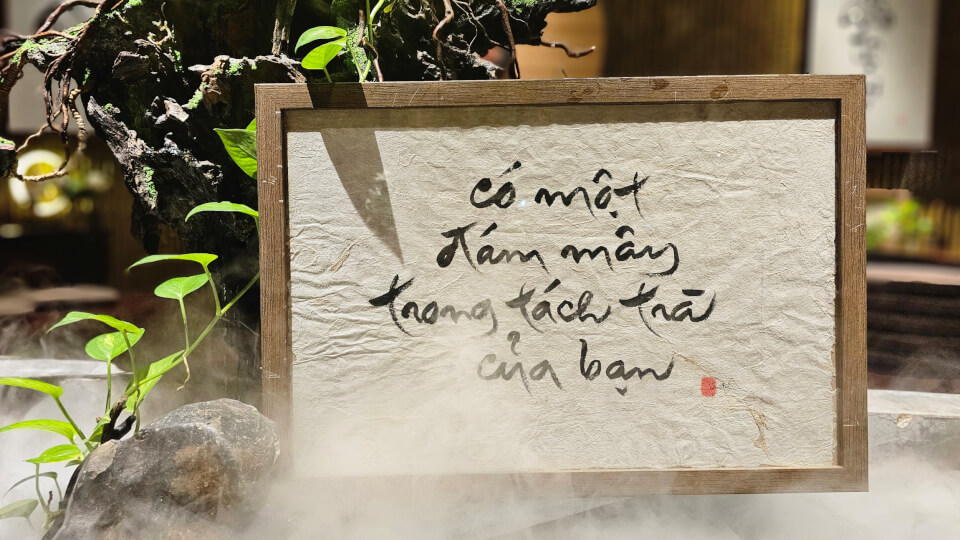 có một
đám mây
trong tách trà
của bạn